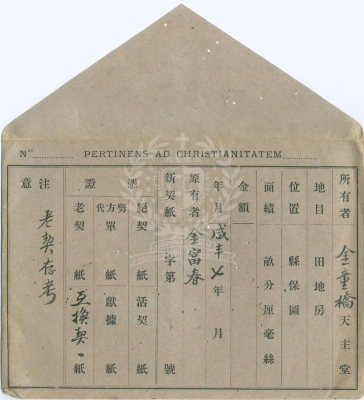 Nº PERTINENS AD CHRISTIANITATEM
所有者 金重橋 天主堂
地目 田地房
位置 縣保圖
面積 畝分厘毫絲
金額
年月 咸丰七年 月
原有者 金富春
新契紙 字第 號
憑證
絕契 紙 活契 紙
勞方代單 紙 獻據 紙
老契 紙 互换契一紙
注意
老契存考